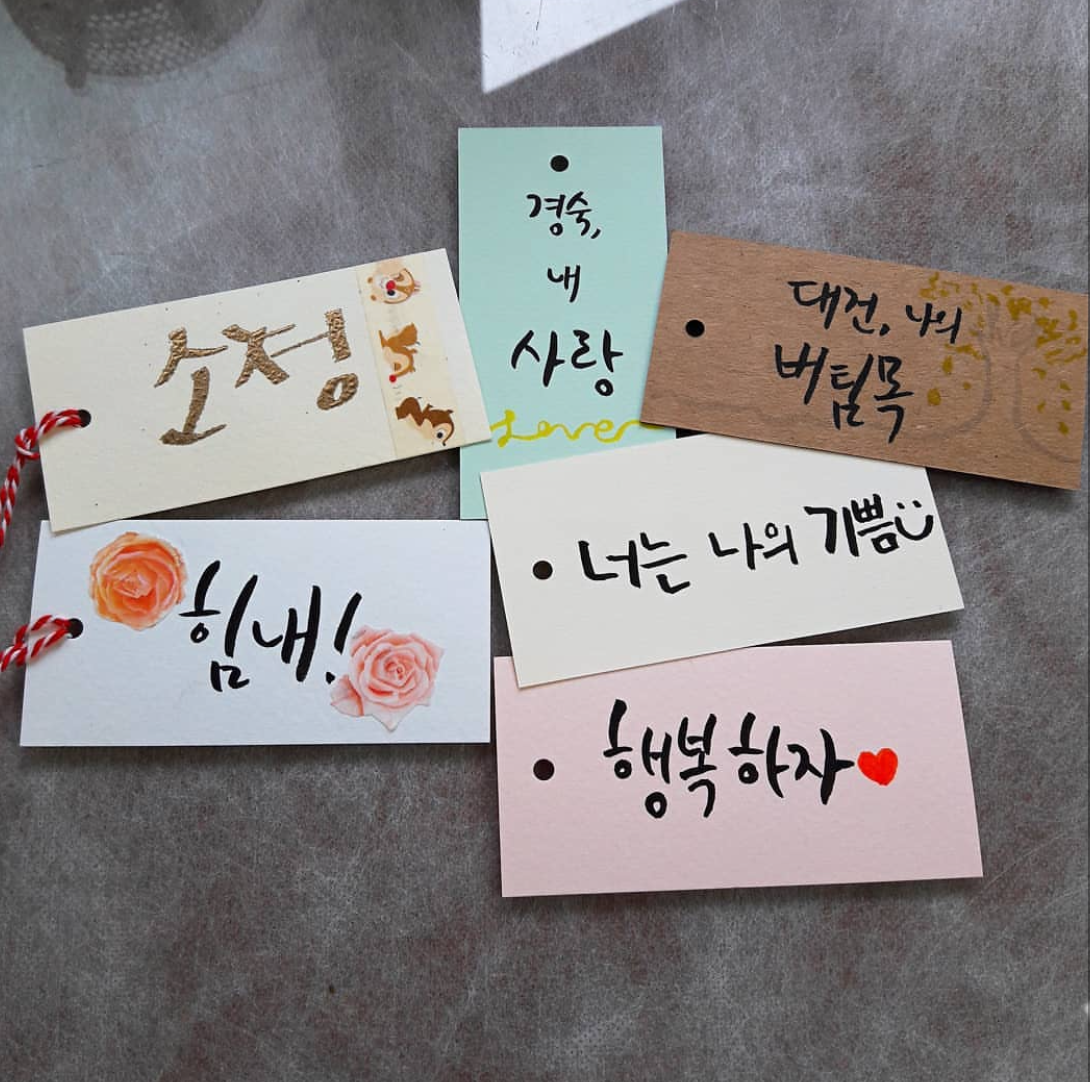 경숙,
내
사랑
Lover
소정
대건, 나의
버팀목
너는 나의 기쁨
힘내!
행복하자